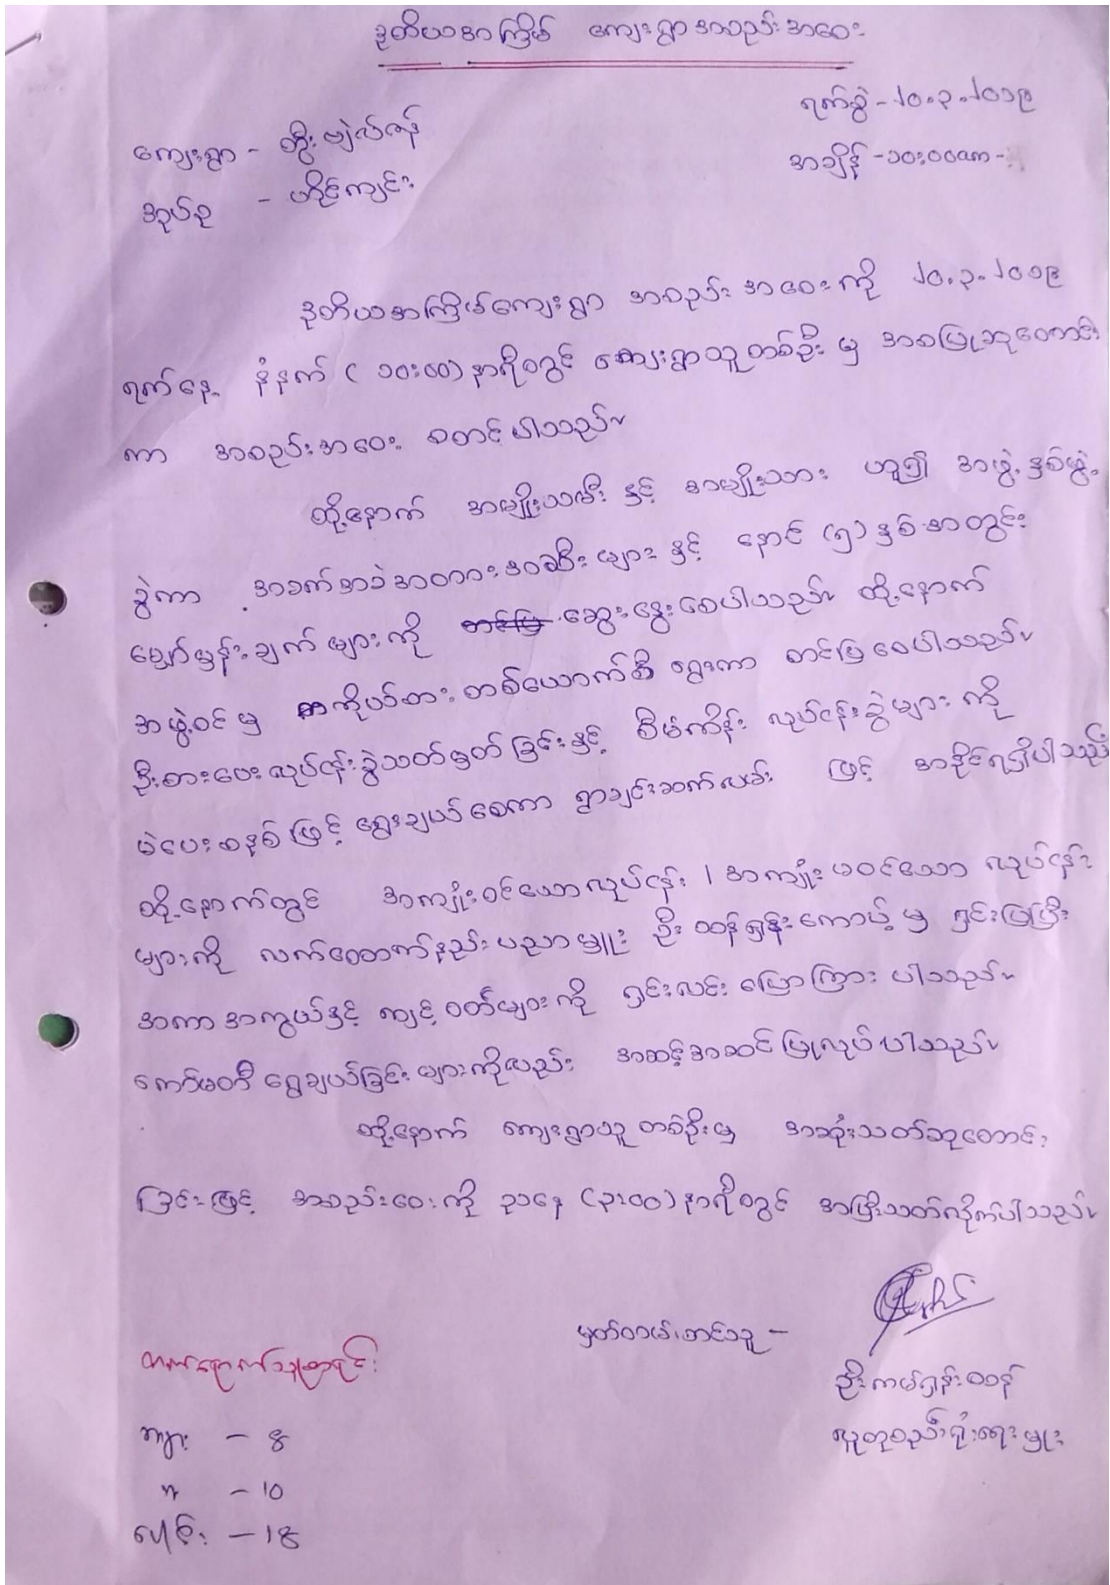 ဒုတိယအကြိမ် ကျေးရွာအစည်းအဝေး
ရက်စွဲ - ၂၀.၃.၂၀၁၉
ကျေးရွာ - တွီးဗျဲလ်ဇန်
အချိန် - ၁၀:၀၀am -
အုပ်စု - ဟိုင်ကျင်း
ဒုတိယအကြိမ်ကျေးရွာ အစည်းအဝေးကို ၂၀.၃.၂၀၁၉
ရက်နေ့ နံနက် (၁၀:၀၀) နာရီတွင် ကျေးရွာသူတစ်ဦးမှ အစပြုဆုတောင်း
ကာ အစည်းအဝေး စတင်ပါသည်။
ထို့နောက် အမျိုးသမီးနှင့် အမျိုးသား ဟူ၍ အဖွဲ့နှစ်ဖွဲ့
ခွဲကာ အခက်အခဲအတားအဆီးများနှင့် နောင် (၅) နှစ်အတွင်း
မျှော်မှန်းချက်များကို ဆွေးနွေးစေပါသည်။ ထို့နောက်
အဖွဲ့ဝင်မှ ကိုယ်စားတစ်ယောက်စီ ရွေးကာ တင်ပြစေပါသည်။
ဦးစားပေးလုပ်ငန်းခွဲသတ်မှတ်ခြင်းနှင့် စီမံကိန်း လုပ်ငန်းခွဲများကို
မဲပေးစနစ်ဖြင့် ရွေးချယ်စေကာ ရွာချင်းဆက်လမ်း ဖြင့် အနိုင်ရရှိပါသည်။
ထို့နောက်တွင် အကျုံးဝင်သောလုပ်ငန်း / အကျုံးမဝင်သော လုပ်ငန်း
များကို လက်ထောက်နည်းပညာမှူး ဦးထန်ရှန်းကောပ့်မှ ရှင်းပြပြီး
အကာအကွယ်နှင့် ကျင့်ဝတ်များကို ရှင်းလင်းပြောကြားပါသည်။
ကော်မတီရွေးချယ်ခြင်းများကိုလည်း အဆင့်အဆင့်ပြုလုပ်ပါသည်။
ထို့နောက် ကျေးရွာသူတစ်ဦးမှ အဆုံးသတ်ဆုတောင်း
ခြင်းဖြင့် အစည်းဝေးကို ညနေ (၃:၀၀) နာရီတွင် အပြီးသတ်လိုက်ပါသည်။
မှတ်တမ်းတင်သူ -
တက်ရောက်သူစာရင်း
ဦးကမ်ရှန်းထန်
လူထုစည်းရုံးရေးမှူး
ကျား - 8
မ - 10
ပေါင်း - 18